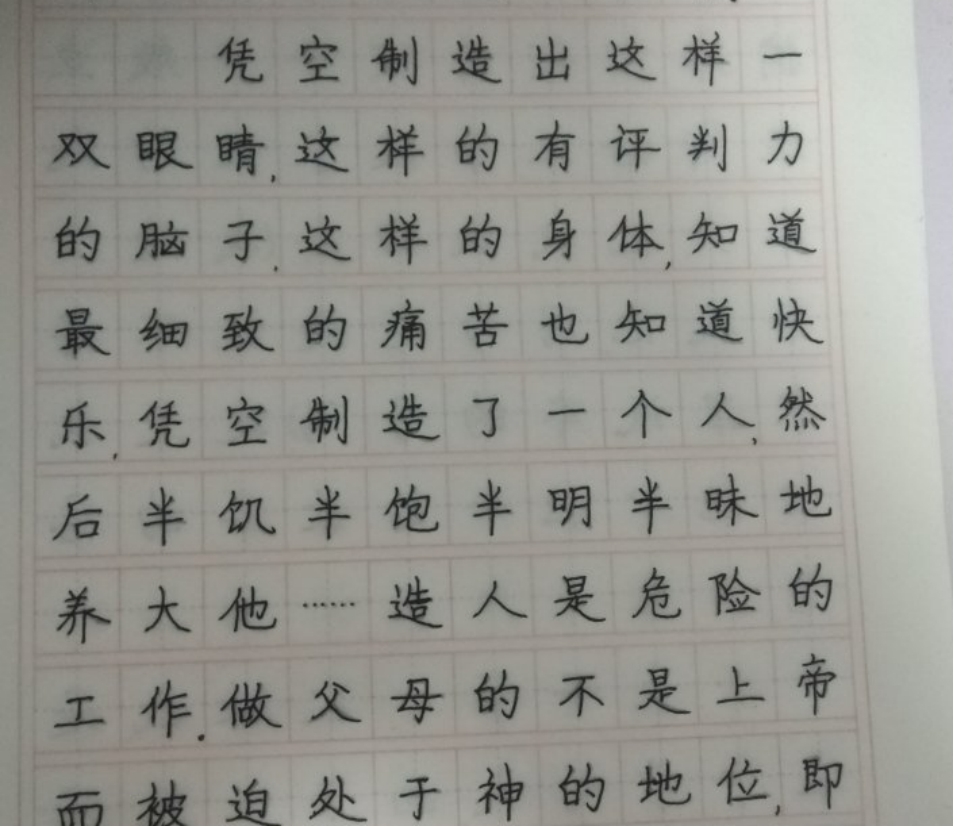 凭空制造出这样一
双眼睛,这样的有评判力
的脑子,这样的身体,知道
最细致的痛苦也知道快
乐,凭空制造了一个人,然
后半饥半饱半明半昧地
养大他……造人是危险的
工作.做父母的不是上帝
而被迫处于神的地位,即